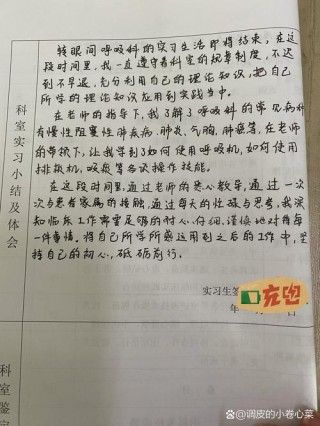 转眼间呼吸科的实习生活即将结束，在这
段时间里，我一直遵守着科室的规章制度，不迟
到不早退，充分利用自己的理论知识，把自己
所学的理论知识应用到实践当中。
在老师的指导下，我了解了呼吸科的常见病种
有慢性阻塞性肺疾病，肺炎，气胸，肺癌等，在老师
的带教下，让我学到了如何使用呼吸机，如何使用
排痰机，吸痰等各项操作技能。
在这段时间里，通过老师的悉心教导，通过一次
次与患者家属的接触，通过每天的忙碌与思考，我深
知临床工作需要足够的耐心，仔细，谨慎地对待每
一件事情。将自己所学所感运用到之后的工作中，坚
持自己的初心，砥砺前行。
科室实习小结及体会
实习生签
充电
年
日
科室鉴定
@调皮的小卷心菜